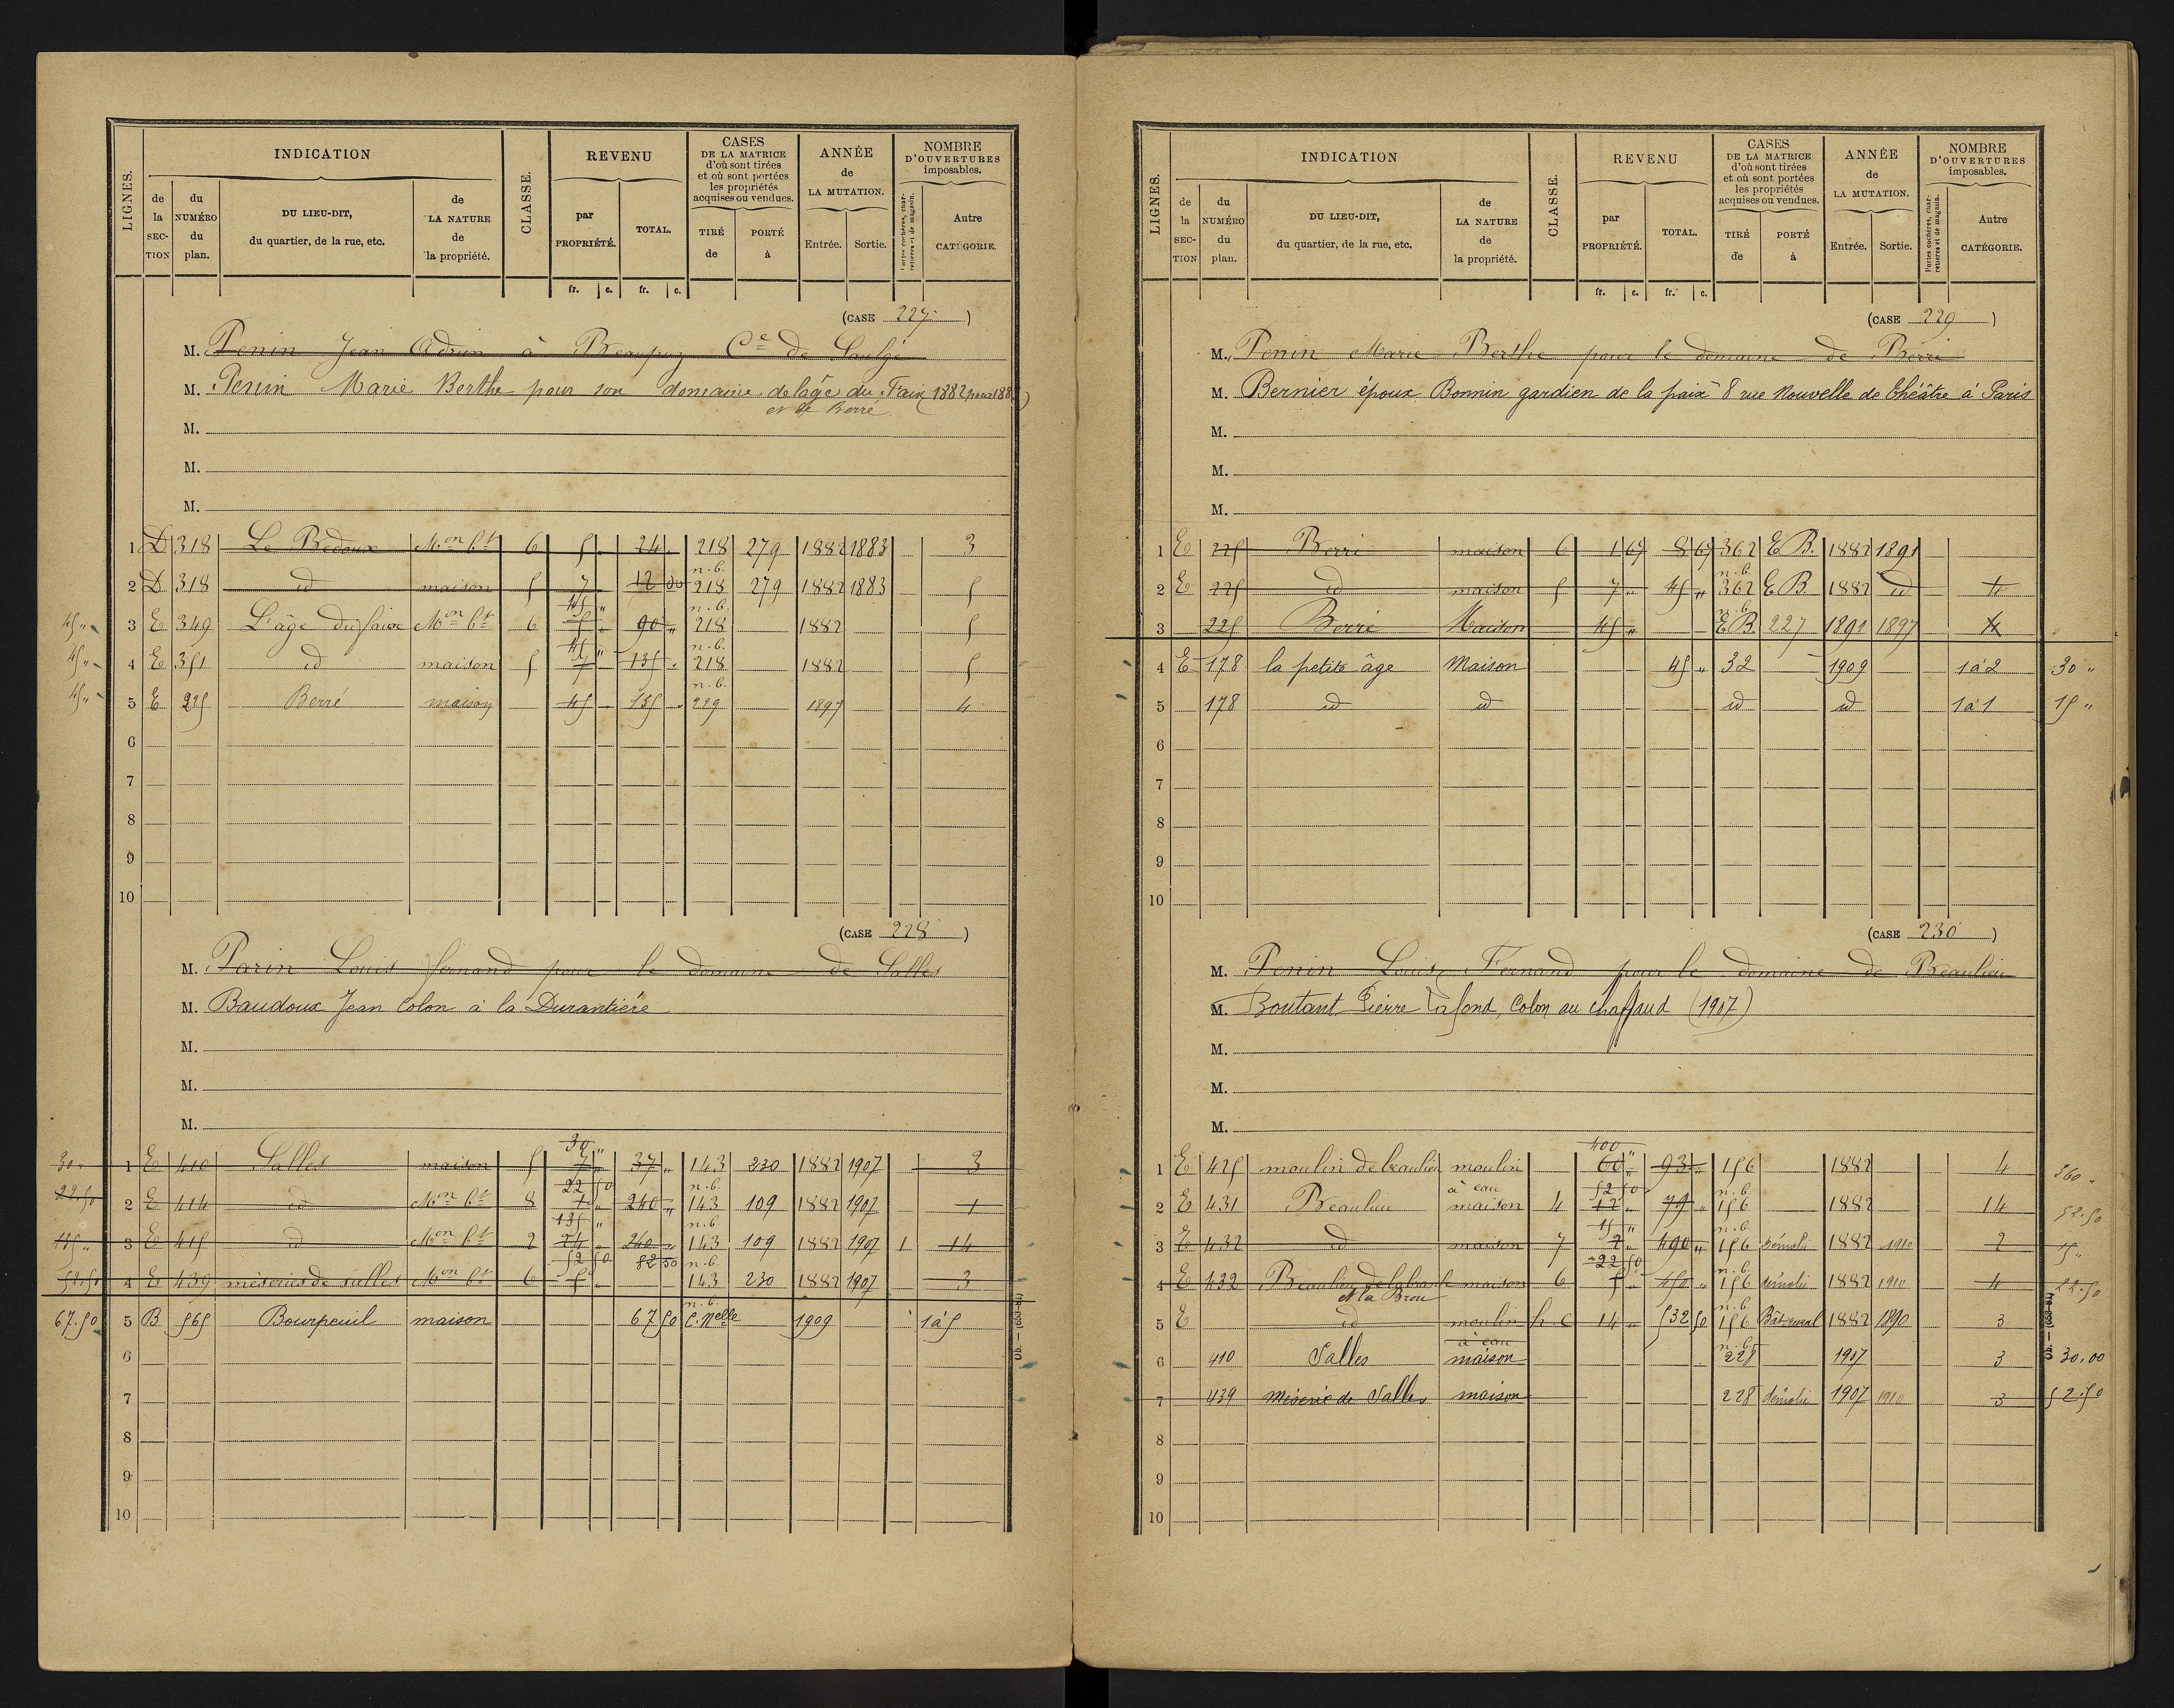 LIGNES.
INDICATION
de la SECTION
du NUMÉRO du plan.
DU LIEU-DIT, du quartier, de la rue, etc.
de LA NATURE de la propriété.
CLASSE.
REVENU
par PROPRIÉTÉ.
TOTAL.
CASES DE LA MATRICE d'où sont tirées et où sont portées les propriétés acquises ou vendues.
TIRÉ de
PORTÉ à
ANNÉE de LA MUTATION.
Entrée. Sortie.
NOMBRE D'OUVERTURES imposables.
Portes cochères, charretières et de magasin.
Autre CATÉGORIE.
fr. c. fr. c.
(CASE 227)
M. Penin Jean Adrien à Beaupuy Cne de Saulgé
M. Penin Marie Berthe pour son domaine de l'âge du Faix (1882 pour 188
et de Berré
M.
M.
M.
1 D 318 Le Bedoux Mon bt 6 5 " 24 " 218 279 1882 1883 3
2 D 318 id maison 5 7 12 00 n.b. 218 279 1882 1883 5
45 " 3 E 349 L'âge du faix Mon bt 6 45 " 5 90 " n.b. 218 1882 5
45 " 4 E 351 id maison 5 45 " 7 135 " n.b. 218 1882 5
45 " 5 E 225 Berré maison 45 135 " n.b. 229 1897 4
6
7
8
9
10
(CASE 228)
M. Parin Louis fernand pour le domaine de Salles
M. Baudoux Jean Colon à la Durantière
M.
M.
M.
30 " 1 E 410 Salles maison 5 30 " 7 " 37 " 143 230 1882 1907 3
22.50 2 E 414 id Mon bt 8 22 50 1 " 240 " n.b. 143 109 1882 1907 1
3 E 415 id Mon bt 2 135 " 24 " 240 " n.b. 143 109 1882 1907 1 14
52.50 4 E 439 méseries de salles Mon bt 6 52 50 5 " 82 50 n.b. 143 230 1882 1907 3
67.50 5 B 565 Bourpeuil maison 67 50 n.b. C. Nelle 1909 1à5
6
7
8
9
10
LIGNES.
INDICATION
de la SECTION
du NUMÉRO du plan.
DU LIEU-DIT, du quartier, de la rue, etc.
de LA NATURE de la propriété.
CLASSE.
REVENU
par PROPRIÉTÉ.
TOTAL.
CASES DE LA MATRICE d'où sont tirées et où sont portées les propriétés acquises ou vendues.
TIRÉ de
PORTÉ à
ANNÉE de LA MUTATION.
Entrée. Sortie.
NOMBRE D'OUVERTURES imposables.
Portes cochères, charretières et de magasin.
Autre CATÉGORIE.
fr. c. fr. c.
(CASE 229)
M. Penin Marie Berthe pour le domaine de Berré
M. Bernier époux Bonnin gardien de la paix 8 rue Nouvelle de théâtre à Paris
M.
M.
M.
1 E 225 Berré maison 6 1 67 8 67 362 E B. 1882 1891
2 E 225 id maison 5 7 " 45 " n.b. 362 E B. 1882 id 4
3 225 Berré Maison 45 " n.b. E B. 227 1891 1897 4
4 E 178 la petite âge Maison 45 " 32 1909 1à2 30 "
5 178 id id id id 1à1 15 "
6
7
8
9
10
(CASE 230)
M. Penin Louis Fernand pour le domaine de Beaulieu
M. Boutant Pierre Lafond, Colon au chaffaud (1907)
M.
M.
M.
1 E 425 moulin de beaulieu moulin à eau 400 " 60 " 93 " 156 1882 4 360 "
2 E 431 Beaulieu maison 4 52 50 12 " 79 " n.b. 156 1882 14 52.50
3 E 432 id maison 7 15 " 2 " 490 " n.b. 156 démolie 1882 1910 2 15 "
4 E 432 Beaulieu maison 6 22 50 5 " 450 " n.b. 156 démolie 1882 1910 4 22.50
et la Brou
5 E id moulin à eau h c 14 " 532 50 n.b. 156 Bât. rural 1882 1890 3
6 410 Salles maison n.b. 228 1907 3 30.00
7 439 Méserie de Salles maison 228 démolie 1907 1910 3 52.50
8
9
10